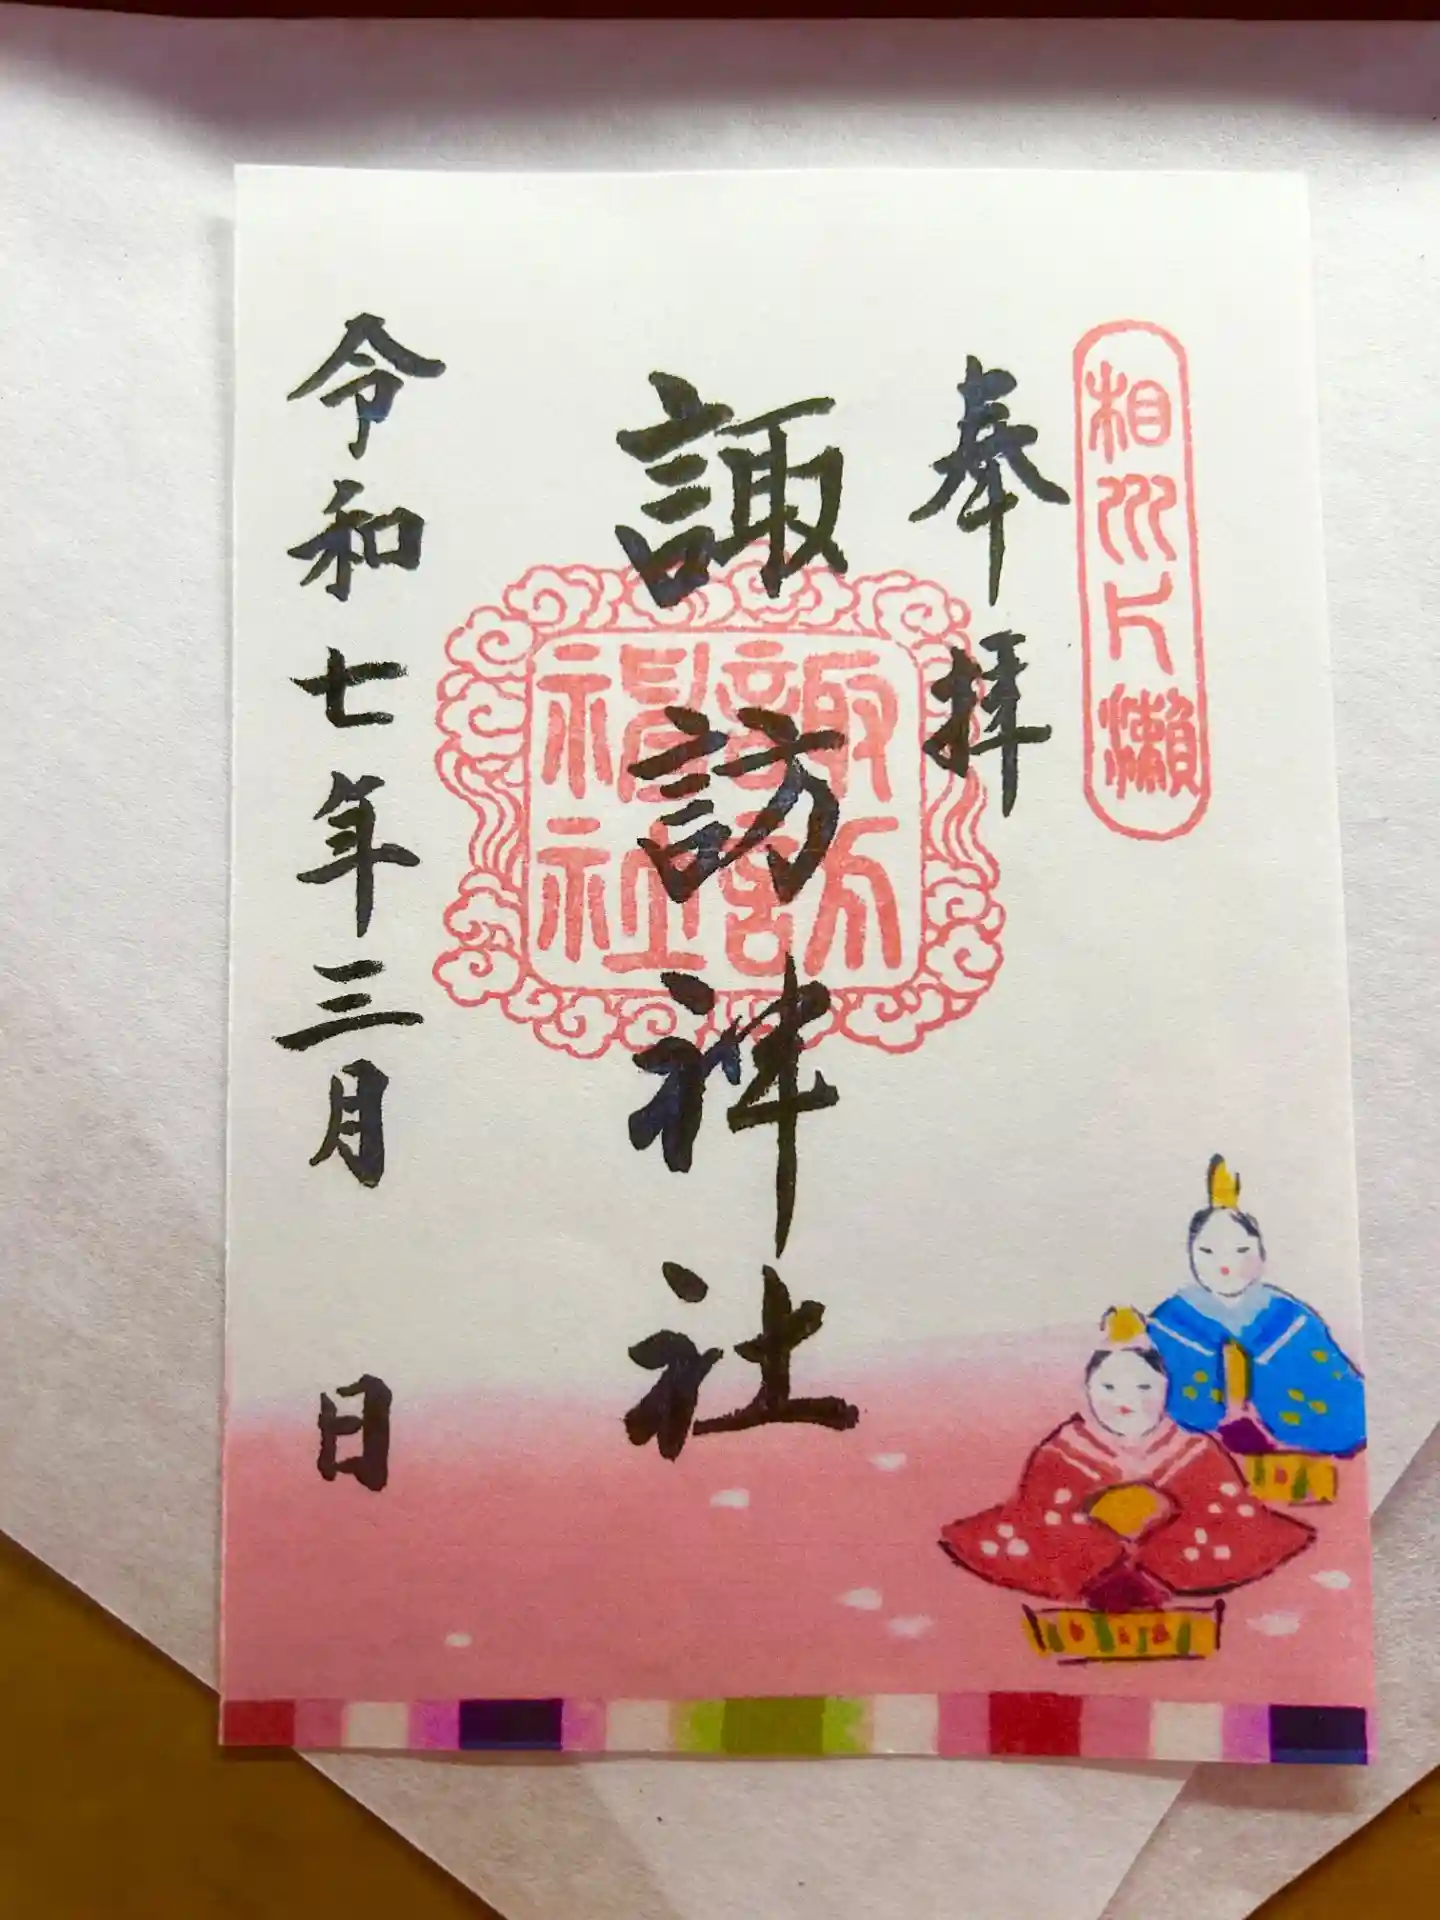 相州片瀬
奉拝
諏訪神社
諏訪神社
令和七年三月 日